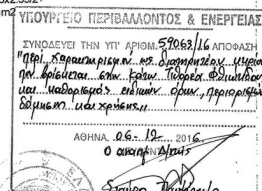 ΥΠΟΥΡΓΕΙΟ ΠΕΡΙΒΑΛΛΟΝΤΟΣ & ΕΝΕΡΓΕΙΑΣ
ΣΥΝΟΔΕΥΕΙ ΤΗΝ ΥΠ' ΑΡΙΘΜ. 59063/16 ΑΠΟΦΑΣΗ
"Περί Χαρακτηρισμού ως διατηρητέου κτιρίου
που βρίσκεται στην Φθιώτιδας
και καθορισμός ειδικών όρων, περιορισμών
δόμησης και χρήσης"
ΑΘΗΝΑ, 06-12- 2016
Ο